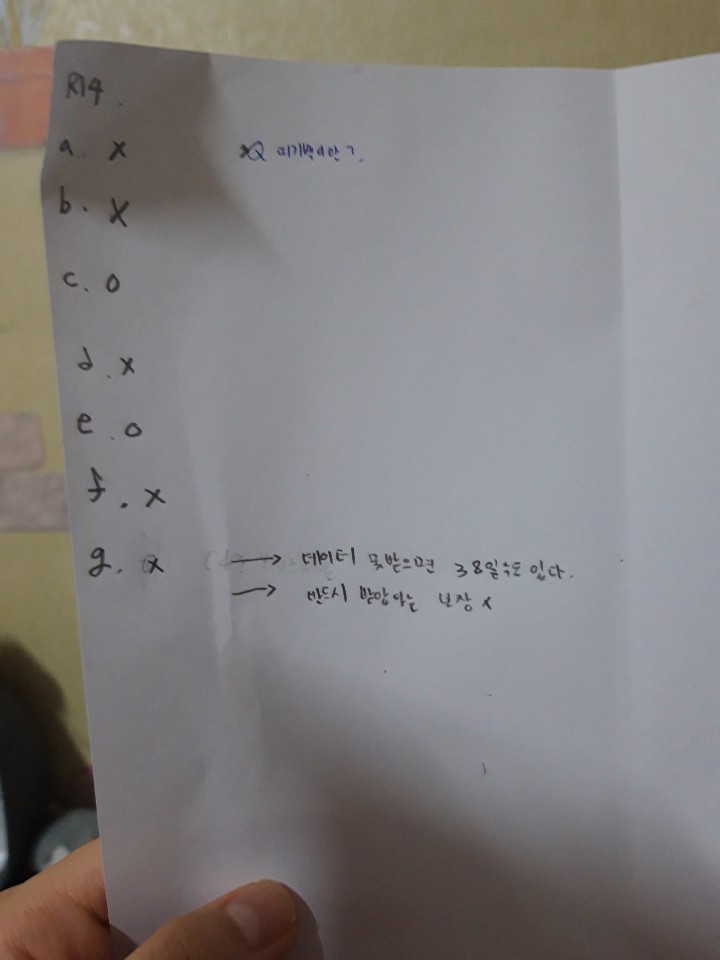 R14.
a. x *Q 피기백이란?.
b. X
c. o
d. x
e. o
f. x
g. x → 데이터 못받으면 38일수도 있다.
→ 반드시 받았다는 보장 x